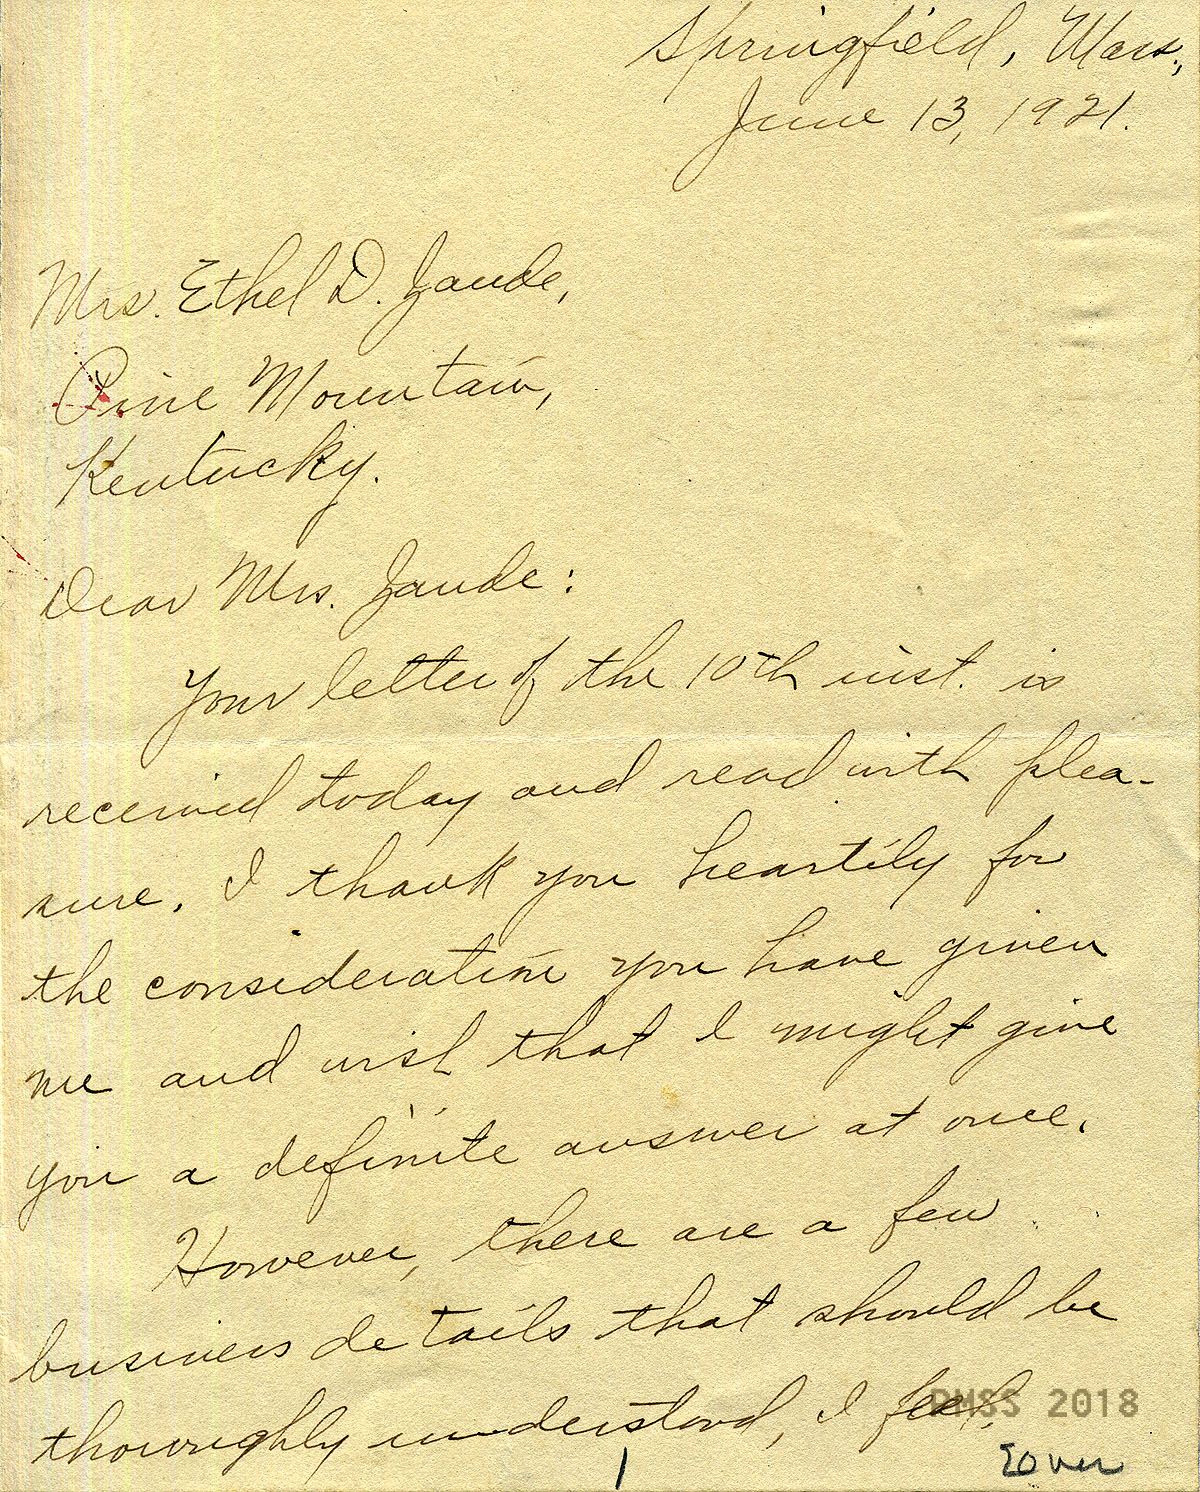 Springfield, Mass.,
June 13, 1921.
Mrs. Ethel D. Zande,
Pine Mountain,
Kentucky.
Dear Mrs. Zande:
Your letter of the 10th inst. is
received today and read with plea-
sure. I thank you heartily for
the consideration you have given
me and wish that I might give
you a definite answer at once.
However, there are a few
business details that should be
thoroughly understood, I feel.
PMSS 2018
1
over